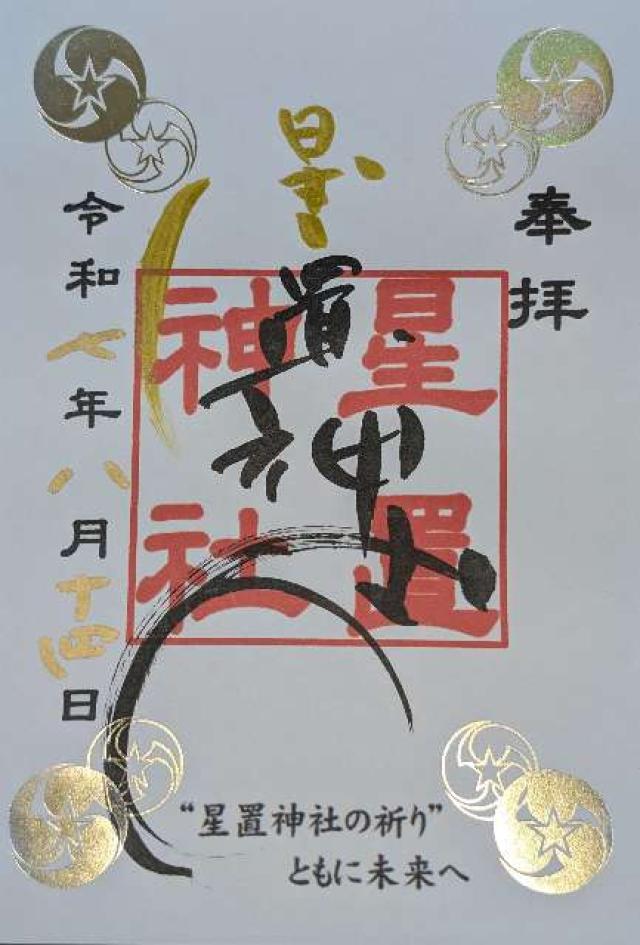 奉拝
星置神社
星置神社
令和七年八月十四日
“星置神社の祈り”
ともに未来へ